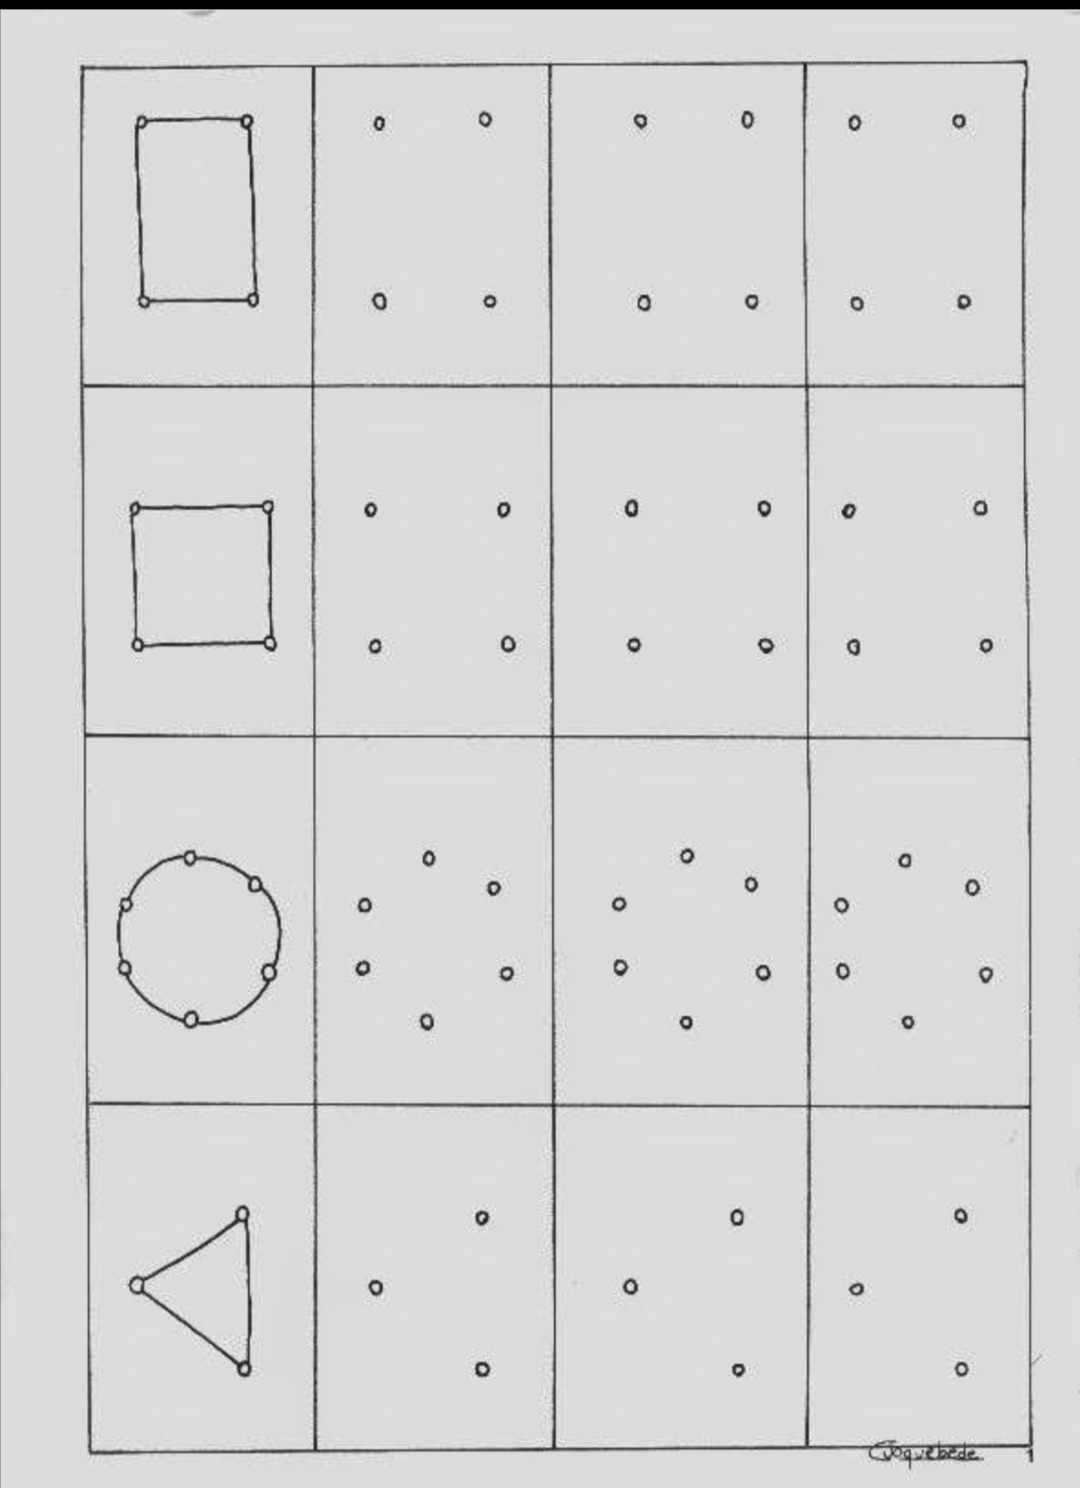 Joquebede
1